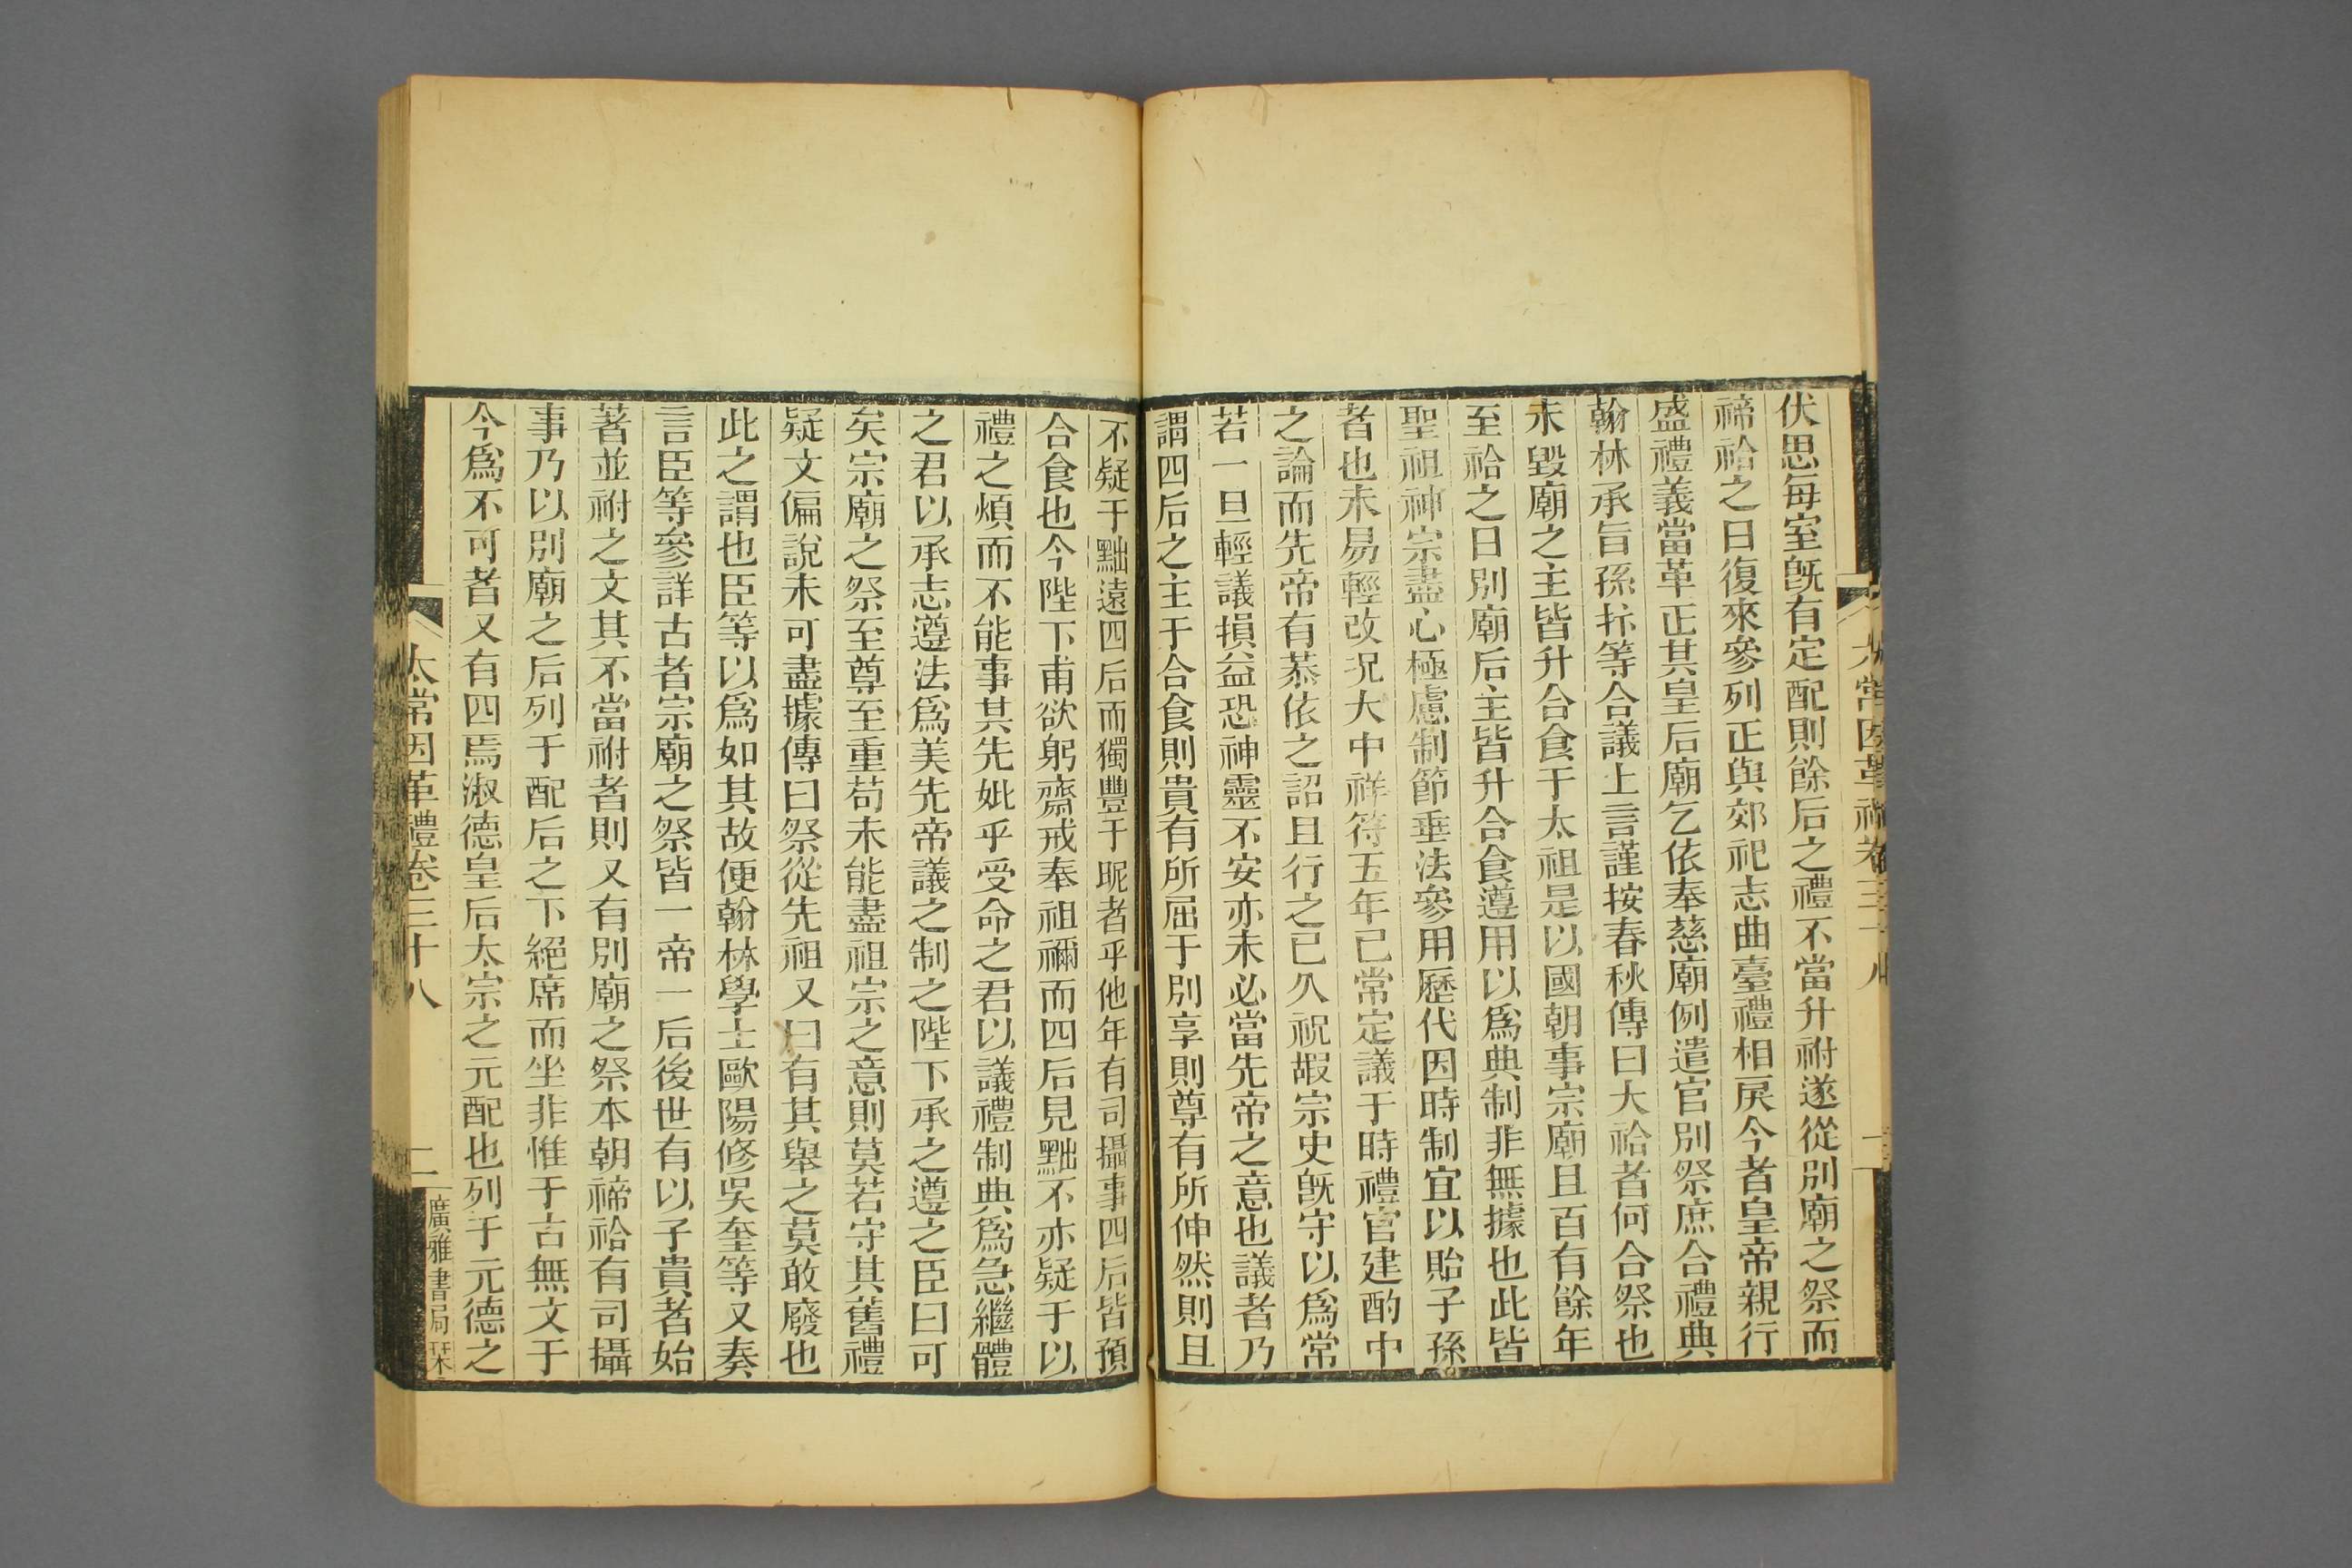 伏思每室旣有定配則餘后之禮不當升祔遂從別廟之祭而
禘祫之日復來參列正與郊祀志曲臺禮相戾今者皇帝親行
盛禮義當革正其皇后廟乞依奉慈廟例遣官別祭庶合禮典
翰林承旨孫抃等合議上言謹按春秋傳曰大祫者何合祭也
未毀廟之主皆升合食于太祖是以國朝事宗廟且百有餘年
至祫之日別廟后主皆升合食遵用以爲典制非無據也此皆
聖祖神宗盡心極慮制節垂法參用歷代因時制宜以貽子孫
者也未易輕改況大中祥符五年已常定議于時禮官建酌中
之論而先帝有恭依之詔且行之已久祝嘏宗史旣守以爲常
若一旦輕議損益恐神靈不安亦未必當先帝之意也議者乃
謂四后之主于合食則貴有所屈于別享則尊有所伸然則且
不疑于黜遠四后而獨豐于昵者乎他年有司攝事四后皆預
合食也今陛下甫欲躬齋戒奉祖禰而四后見黜不亦疑于以
禮之煩而不能事其先妣乎受命之君以議禮制典爲急繼體
之君以承志遵法爲美先帝議之制之陛下承之遵之臣曰可
矣宗廟之祭至尊至重苟未能盡祖宗之意則莫若守其舊禮
疑文偏說未可盡據傳曰祭從先祖又曰有其舉之莫敢廢也
此之謂也臣等以爲如其故便翰林學士歐陽修吳奎等又奏
言臣等參詳古者宗廟之祭皆一帝一后後世有以子貴者始
著並祔之文其不當祔者則又有別廟之祭本朝禘祫有司攝
事乃以別廟之后列于配后之下絕席而坐非惟于古無文于
今爲不可者又有四焉淑德皇后太宗之元配也列于元德之
太常因革禮卷三十八
二
廣雅書局栞